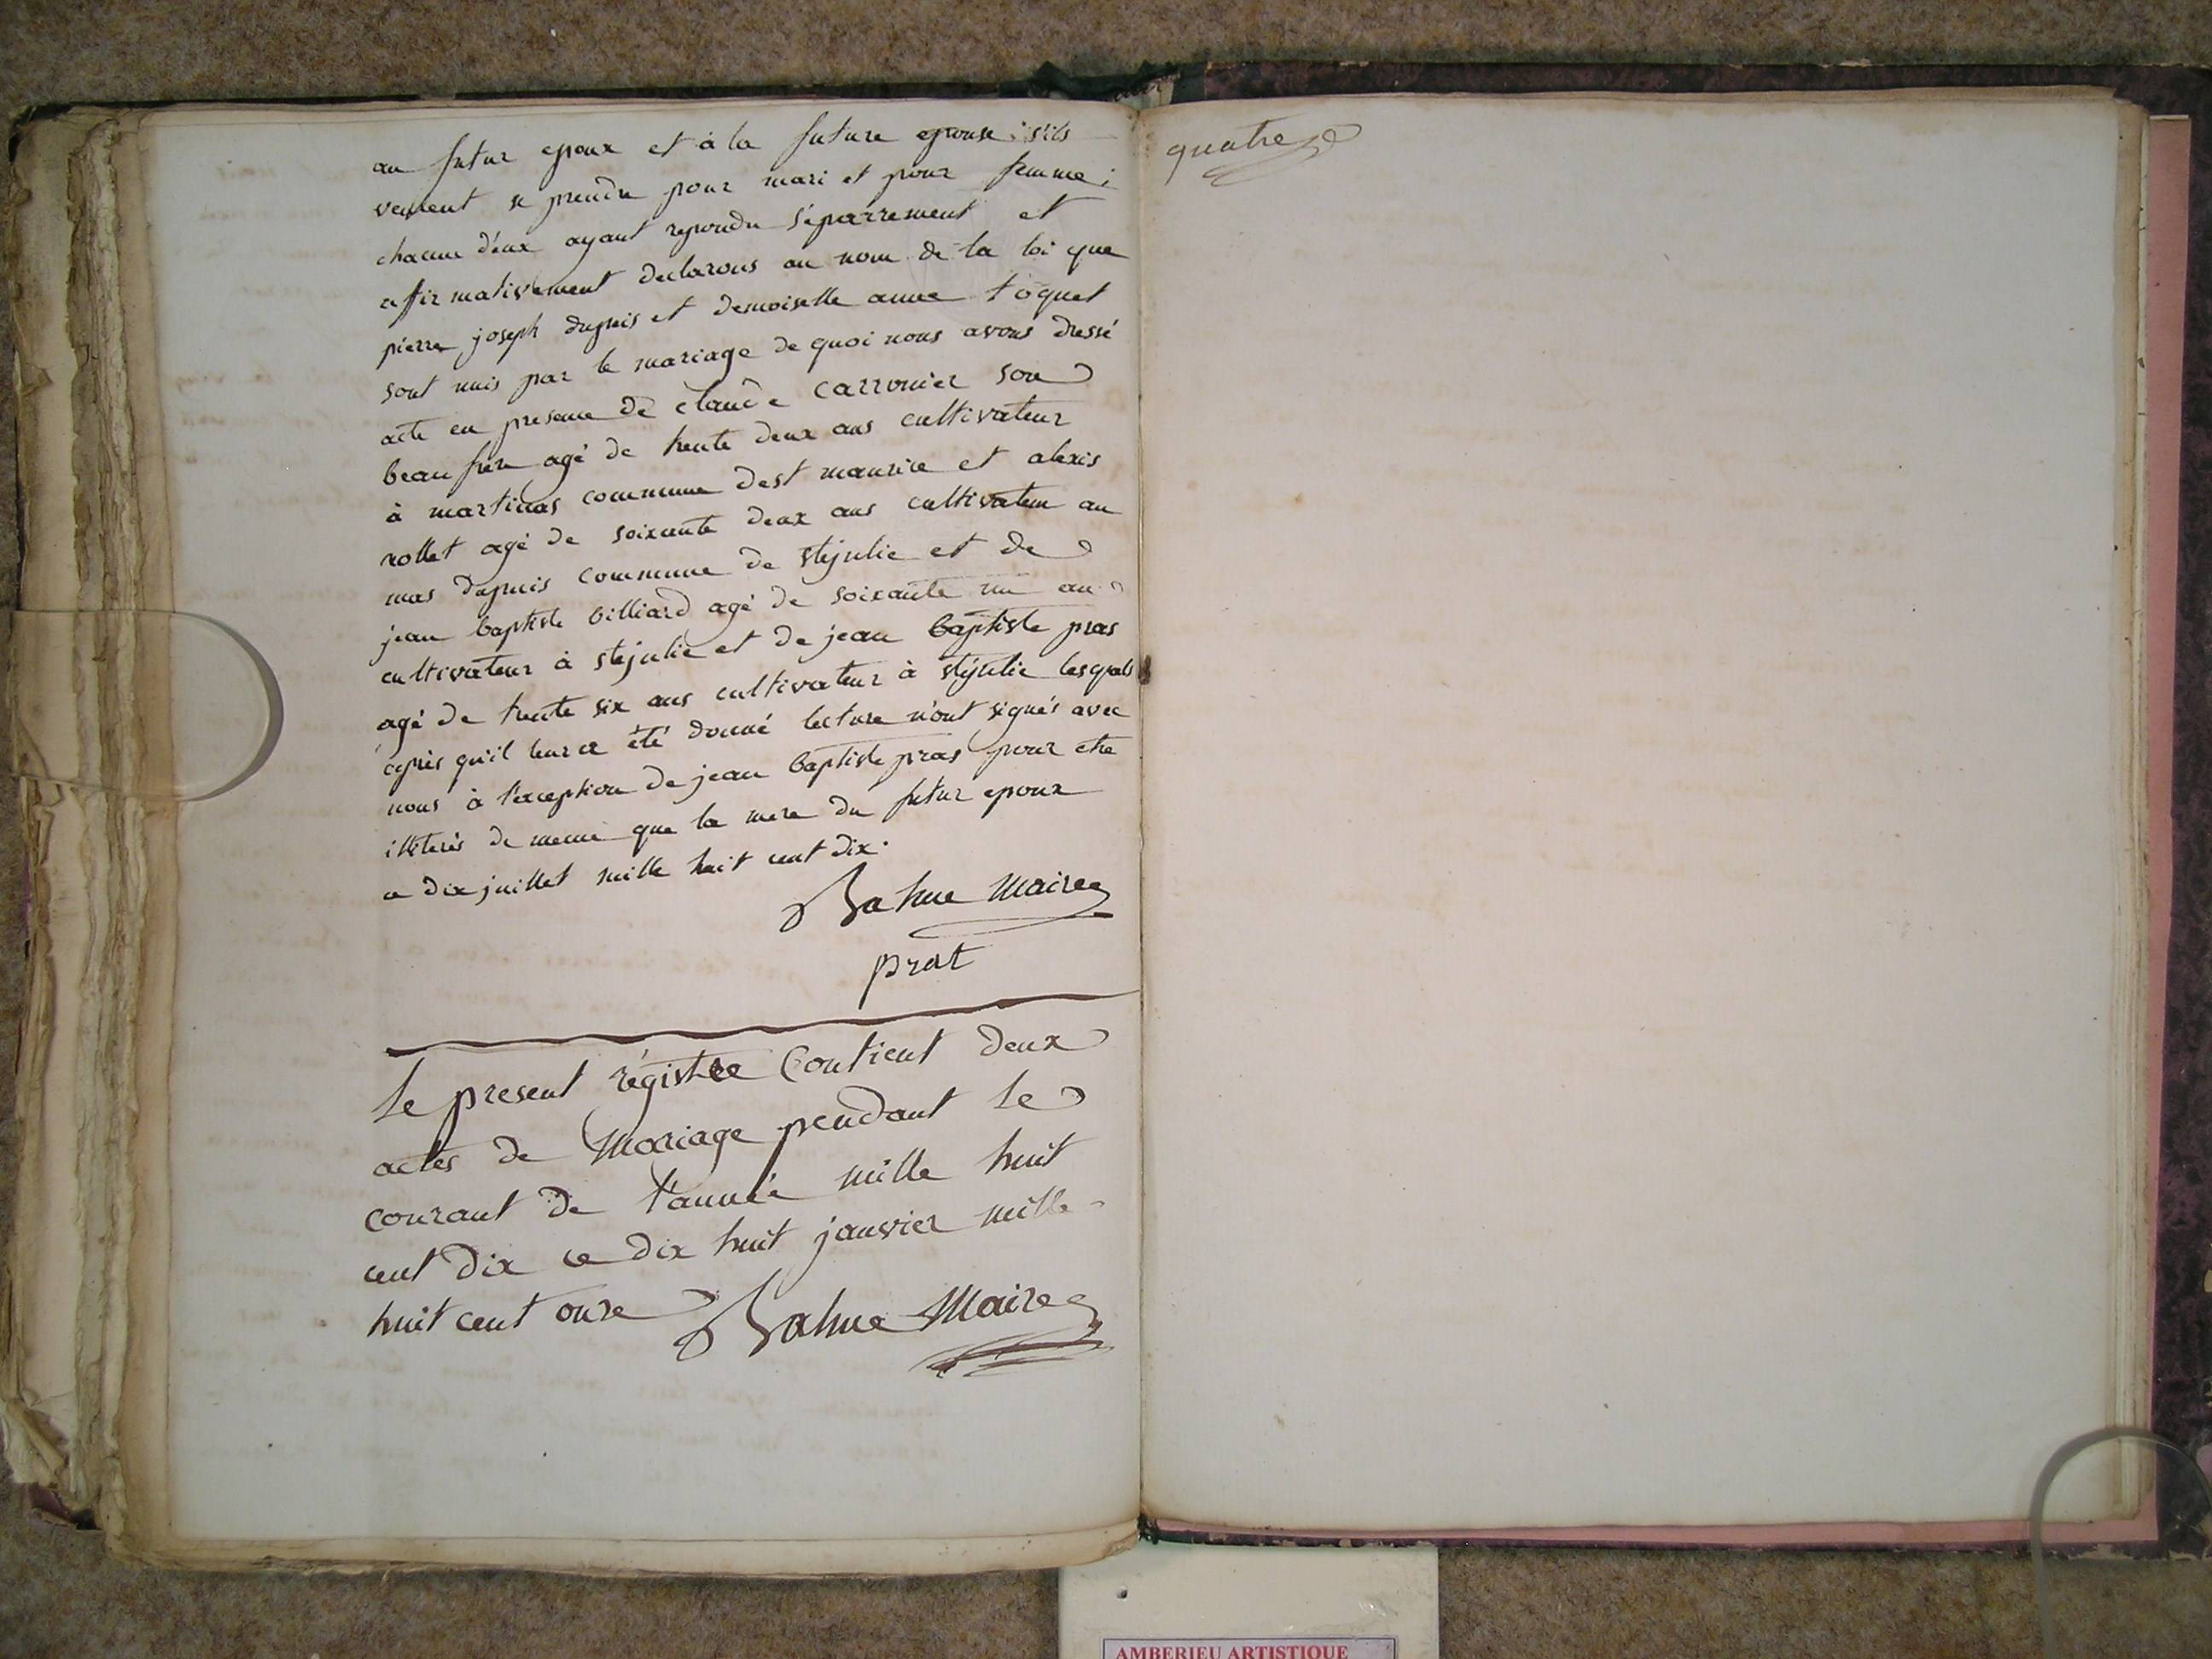 au futur epoux et à la future epouse s'ils
veulent se prendre pour mari et pour femme;
chacun d'eux ayant repondu séparrement et
affirmativement declarons au nom de la loi que
pierre joseph dupuis et demoiselle anne toquet
sont unis par le mariage de quoi nous avons dressé
acte en presence de claude carronier son
beau frere agé de trente deux ans cultivateur
à martinas commune de st maurice et alexis
rollet agé de soixante deux ans cultivateur au
mas dupuis commune de ste julie et de
jean baptiste billiard agé de soixante un an
cultivateur à ste julie et de jean baptiste pras
agé de trente six ans cultivateur à ste julie lesquels
après qu'il leur a été donné lecture n'ont signés avec
nous à l'exception de jean baptiste pras pour etre
illiterés de meme que la mere du futur epoux
ce dix juillet mille huit cent dix.
Maire
prat
Le present régistre Contient deux
actes de Mariage pendant le
courant de l'année mille huit
cent dix ce dix huit janvier mille
huit cent onze Maire
quatre
AMBERIEU ARTISTIQUE